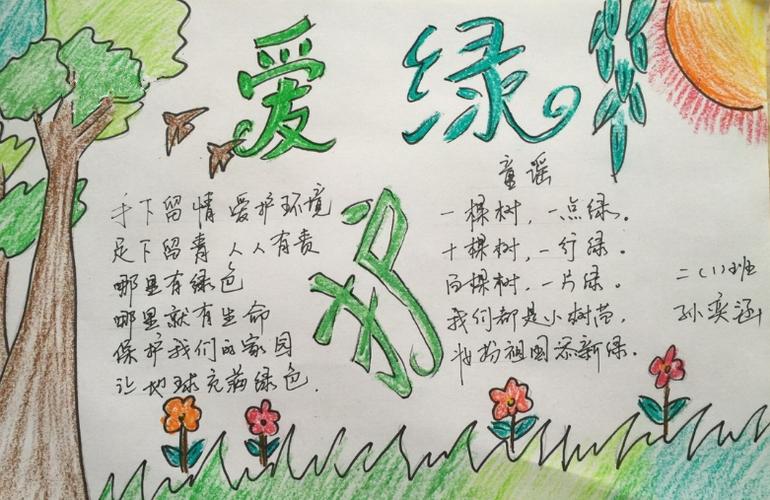 爱绿护
手下留情 爱护环境
足下留青 人人有责
哪里有绿色
哪里就有生命
保护我们的家园
让地球充满绿色.
童谣
一棵树,一点绿。
十棵树,一行绿。
百棵树,一片绿。
我们都是小树苗,
妆扮祖国添新绿.
二(1)班
孙奕涵